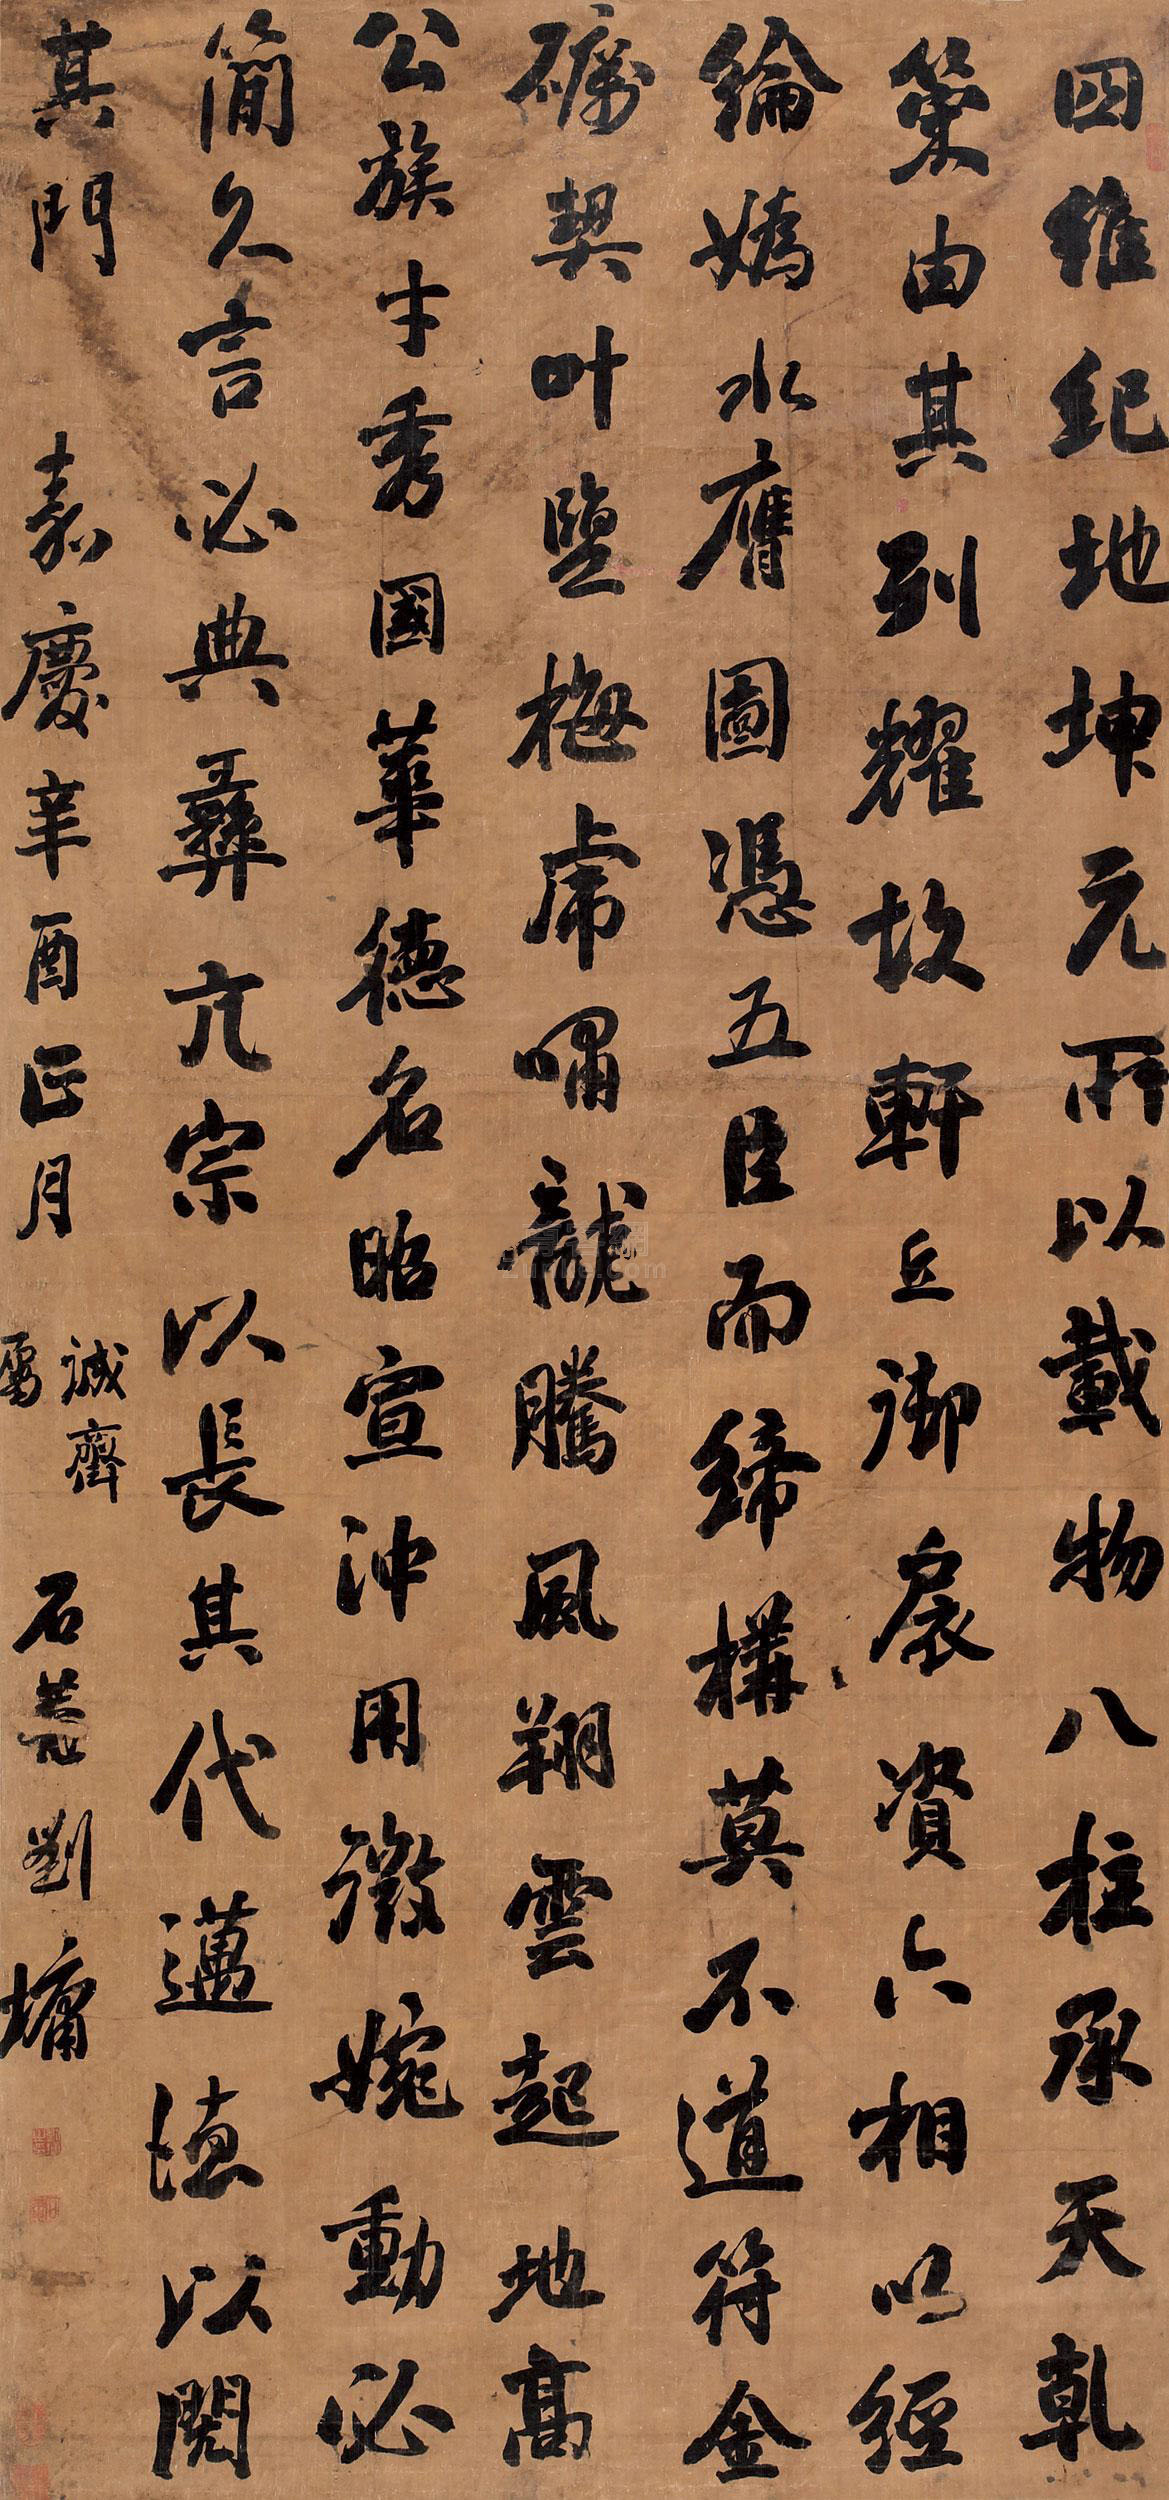 四維紀地坤元所以載物八柱承天乾
策由其列耀故軒丘御扆資六相以經
綸嬀水膺圖憑五臣而締構莫不道符金
礪契叶鹽梅虎嘯龍騰風翔雲起地高
公族才秀國華德名昭宣沖用微婉動必
簡久言必典彝亢宗以長其代邁德以閱
其門
嘉慶辛酉正月
誠齋
屬
石菴劉墉